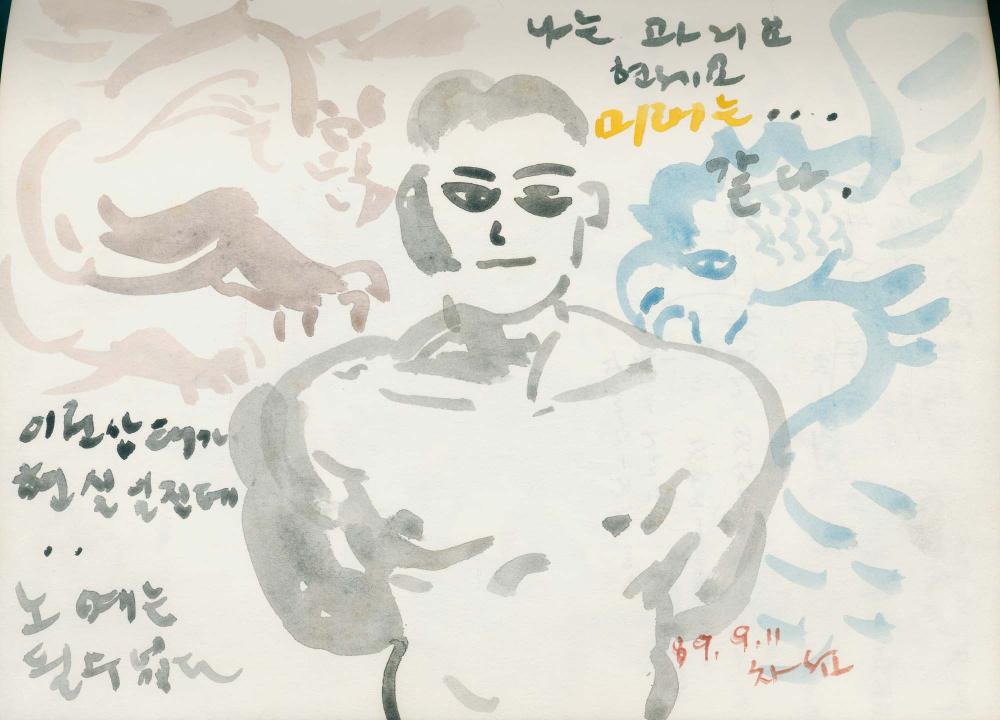 나는 과거요
현재요
미래는....
같다.
이런 상태가
현실일진데
..
노예는
될 수 없다
89. 9. 11